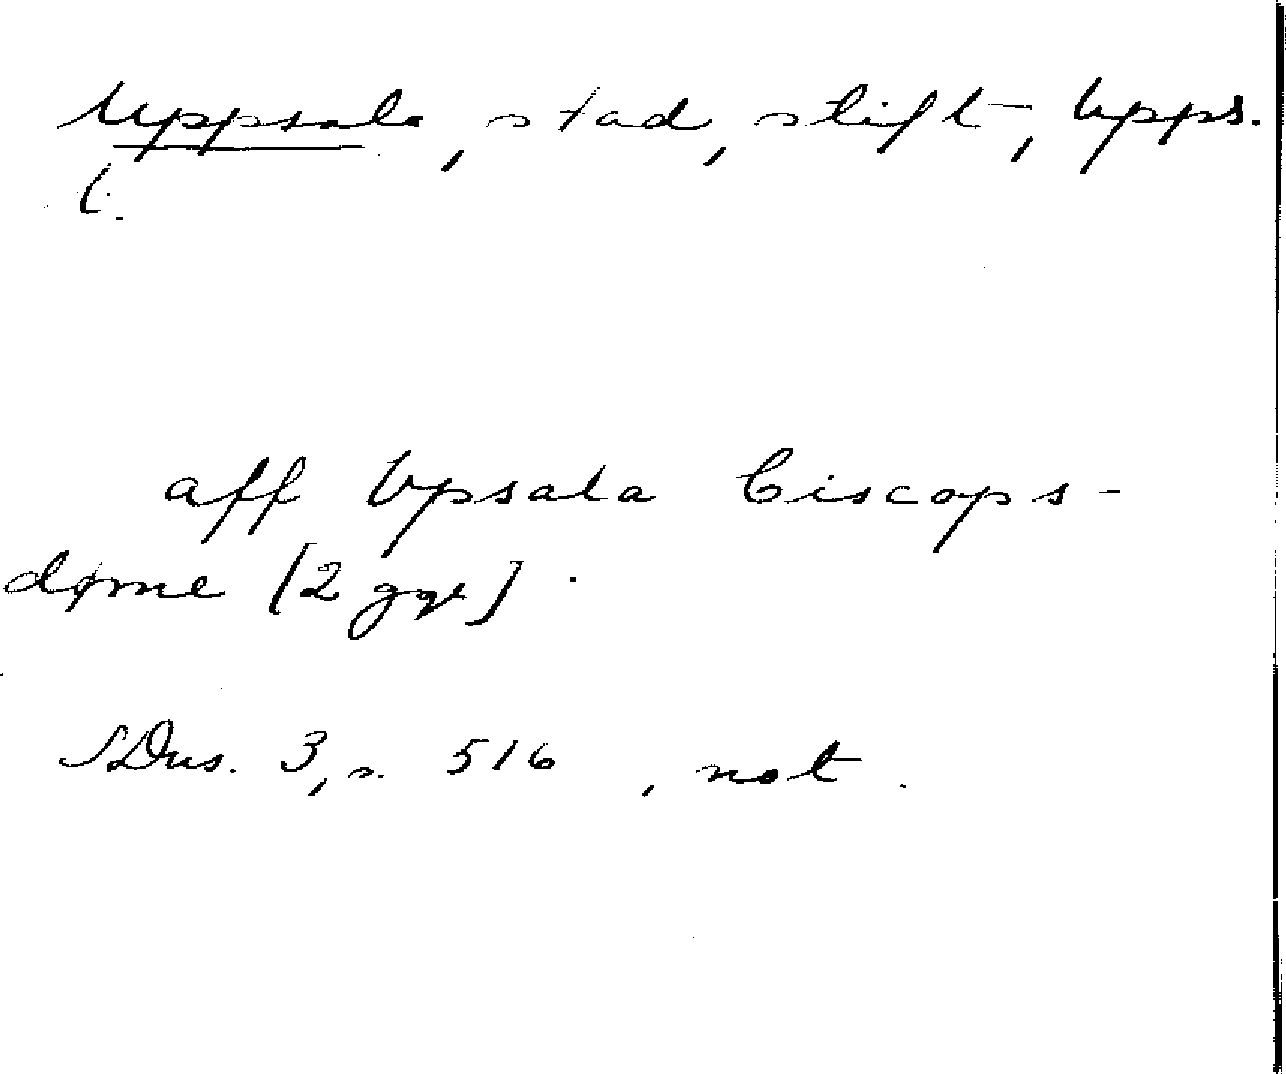 Uppsala, stad, stift, Upps.
l.
aff Vpsala biscops-
døme [2 ggr].
SDns. 3, s. 516, not.